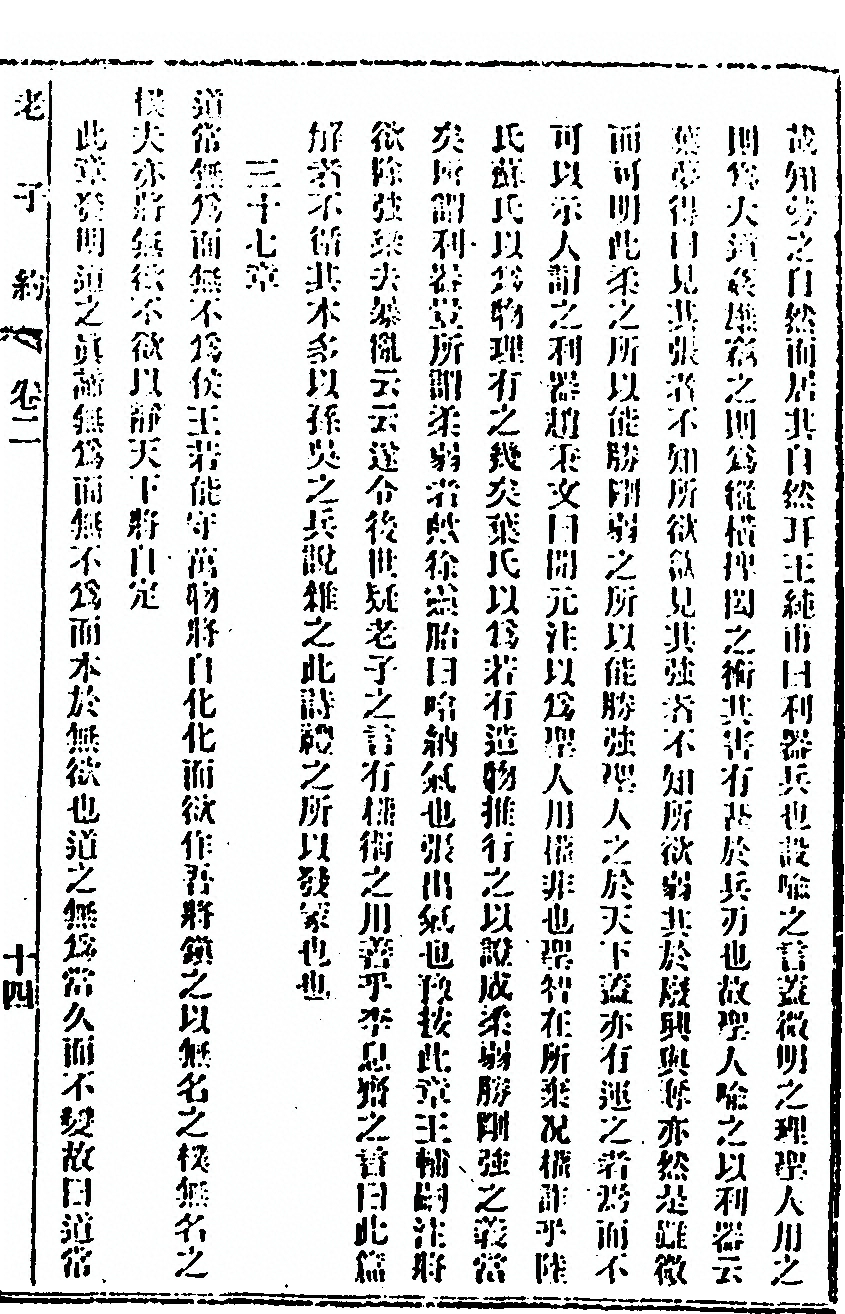 哉知勢之自然而居其自然耳王純甫曰利器兵也設喩之言蓋微明之理聖人用之
則爲大道姦雄竊之則爲縱橫捭闔之術其害有甚於兵刃也故聖人喩之以利器云
葉夢得曰見其張者不知所欲歙見其強者不知所欲弱其於廢興與奪亦然是雖微
而可明此柔之所以能勝剛弱之所以能勝強聖人之於天下蓋亦有運之者焉而不
可以示人謂之利器趙秉文曰開元注以爲聖人用權非也聖智在所棄况權詐乎陸
氏蘇氏以爲物理有之幾矣葉氏以爲若有造物推行之以證成柔弱勝剛強之義當
矣所謂利器豈所謂柔弱者歟徐靈胎曰歙納氣也張出氣也 按此章王輔嗣注將
欲除強梁去暴亂云云遂令後世疑老子之言有權術之用善乎李息齋之言曰此篇
解者不循其本多以孫吳之兵說雜之此詩禮之所以發冢也也
三十七章
道常無爲而無不爲侯王若能守萬物將自化化而欲作吾將鎭之以無名之樸無名之
樸夫亦將無欲不欲以靜天下將自定
此章發明道之眞諦無爲而無不爲而本於無欲也道之無爲當久而不變故曰道常
老子約 卷二 十四